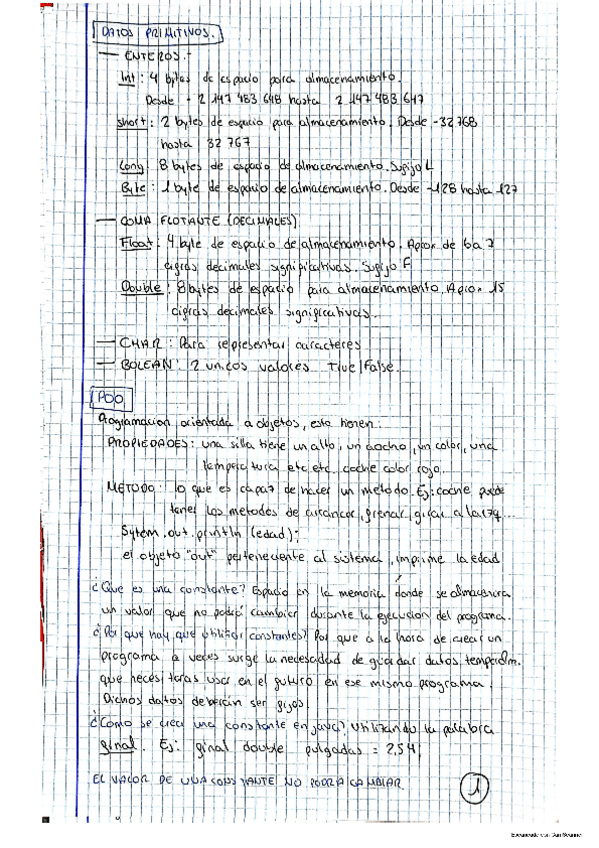 DATOS PRIMITIVOS.
— ENTEROS.-
Int: 4 bytes de espacio para almacenamiento.
Desde -2 147 483 648 hasta 2 147 483 647
Short: 2 bytes de espacio para almacenamiento. Desde -32768
hasta 32 767
Long: 8 bytes de espacio de almacenamiento. Sufijo L
Byte: 1 byte de espacio de almacenamiento. Desde -128 hasta 127
— COMA FLOTANTE (DECIMALES)
Float: 4 byte de espacio de almacenamiento. Aprox de 6 a 7
cifras decimales significativas. Sufijo F
Double: 8 bytes de espacio para almacenamiento. Aprox 15
cifras decimales significativas.
— CHAR: Para representar caracteres
— BOLEAN: 2 unicos valores True/False.
POO
Programacion orientada a objetos, esto tienen:
PROPIEDADES: una silla tiene un alto, un ancho, un color, una
temperatura etc etc. coche color rojo.
METODO: lo que es capaz de hacer un metodo. Ej: coche puede
tener los metodos de arrancar, frenar, girar a la izq...
Sytem.out.println (edad);
el objeto "out" perteneciente al sistema, imprime la edad
¿Que es una constante? Espacio en la memoria donde se almacenara
un valor que no podrá cambiar durante la ejecucion del programa.
¿Por que hay que utilizar constantes? Por que a la hora de crear un
programa a veces surge la necesidad de guardar datos temporalm.
que necesitaras usar en el futuro en ese mismo programa.
Dichos datos deberan ser fijos.
¿Como se crea una constante en java? Utilizando la palabra
final. Ej: final double pulgadas = 2,54;
EL VALOR DE UNA CONSTANTE NO PODRA CAMBIAR.
1
Escaneado con CamScanner